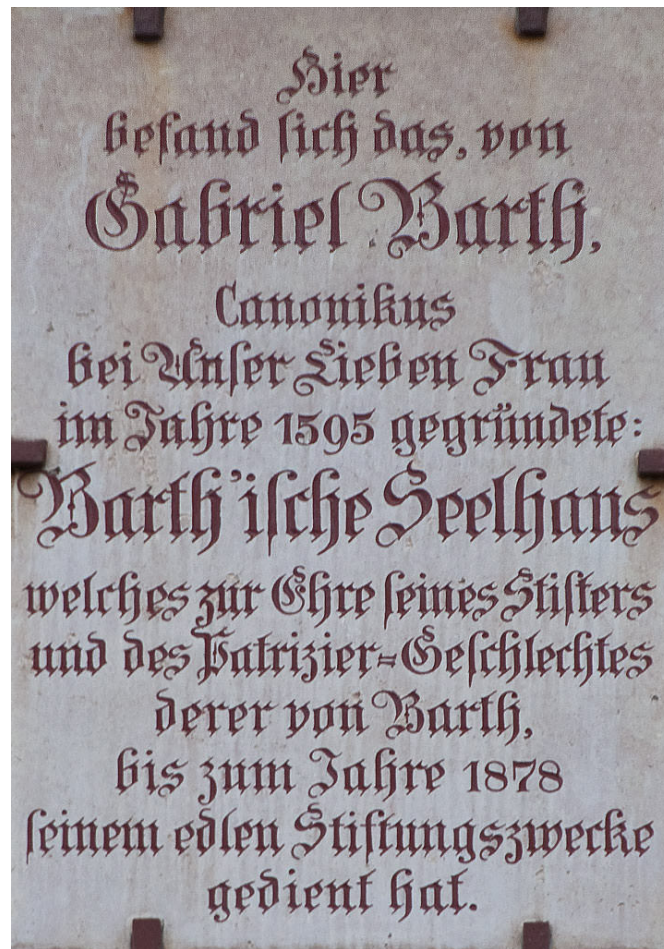 Hier
befand sich das, von
Gabriel Barth,
Canonikus
bei Unser Lieben Frau
im Jahre 1595 gegründete:
Barth'ische Seelhaus
welches zur Ehre seines Stifters
und des Patrizier-Geschlechtes
derer von Barth,
bis zum Jahre 1878
seinem edlen Stiftungszwecke
gedient hat.